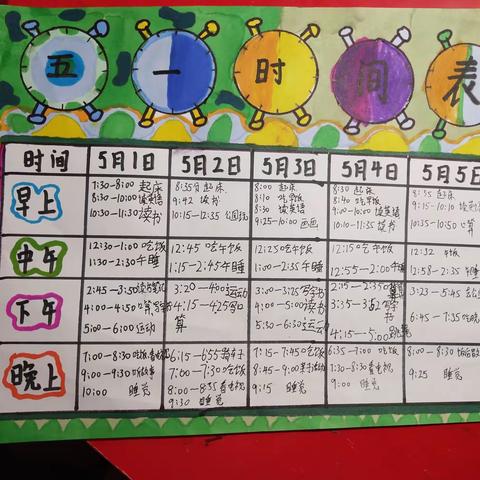 五一时间表
时间 5月1日 5月2日 5月3日 5月4日 5月5日
早上
7:30-8:00 起床
8:30-10:00 读英语
10:30-11:30 读书
8:35分起床
9:42 读书
10:15-12:35 公园玩
8:00 起床
8:10 吃早饭
8:30 读英语
9:25-10:00 画画
8:30 起床
8:40 吃早饭
9:00-10:00 读英语
10:10-11:35 读书
8:35 起床
9:15-10:10
10:35-10:50
中午
12:30-1:00 吃饭
1:30-2:30 午睡
12:45 吃午饭
1:15-2:45 午睡
12:25 吃午饭
1:00-2:35 午睡
12:15 吃午饭
12:55-2:00
12:32 午饭
12:58-2:35
下午
2:45-3:50
4:00-4:50
5:00-6:00 运动
3:20-4:00 运动
4:15-4:25 口算
3:00-3:25
4:00-5:00 读书
5:30-6:30 运动
2:15-2:50
3:35-3:52
4:15-5:00 跳
3:23-5:45
6:45-7:35
晚上
7:00-8:30 吃饭
9:00-9:30 听故事
10:00 睡觉
6:15-6:55
7:00-7:30 吃饭
8:00-8:55 看电视
9:30 睡觉
7:15-7:45 吃饭
8:45-9:00
9:15 睡觉
6:35-7:00 吃饭
7:30-8:30 看电视
9:00 睡觉
8:00-8:30
9:25 睡觉